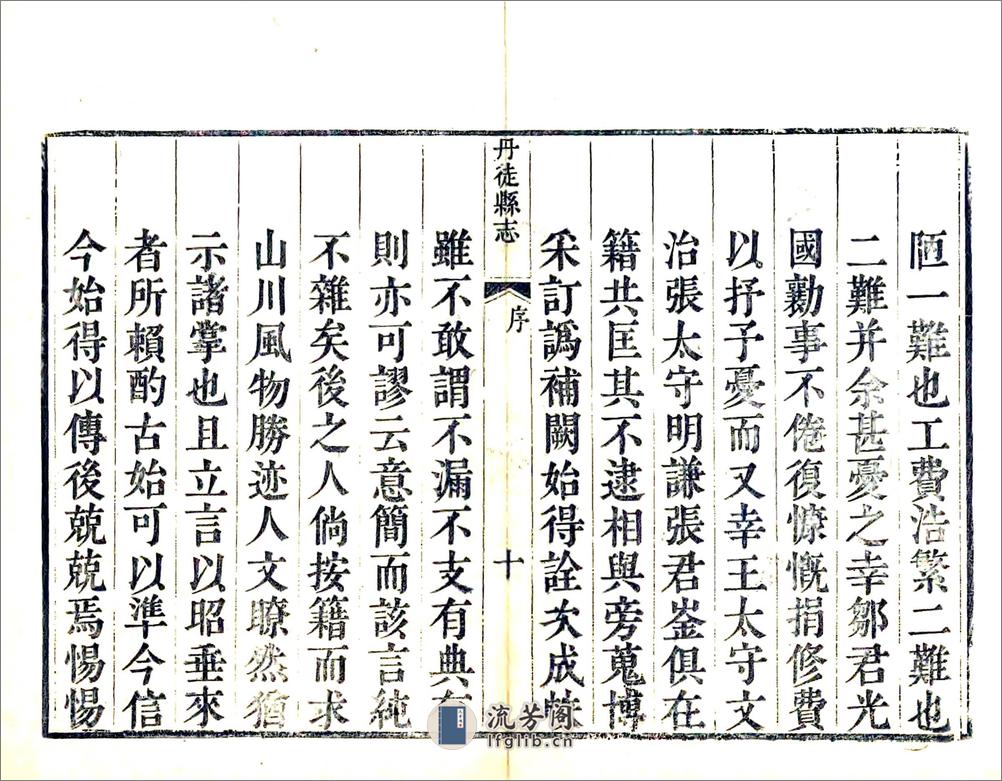 陋一難也工費浩繁二難也
二難并余甚憂之幸鄒君光
國勷事不倦復慷慨捐修費
以抒予憂而又幸王太守文
治張太守明謙張君崟俱在
籍共匡其不逮相與旁蒐博
采訂譌補闕始得詮次成帙
丹徒縣志
序
十
雖不敢謂不漏不支有典有
則亦可謬云意簡而該言純
不雜矣後之人倘按籍而求
山川風物勝迹人文瞭然猶
示諸掌也且立言以昭垂來
者所賴酌古始可以準今信
今始得以傳後兢兢焉惕惕
流芳阁
lfglib.cn